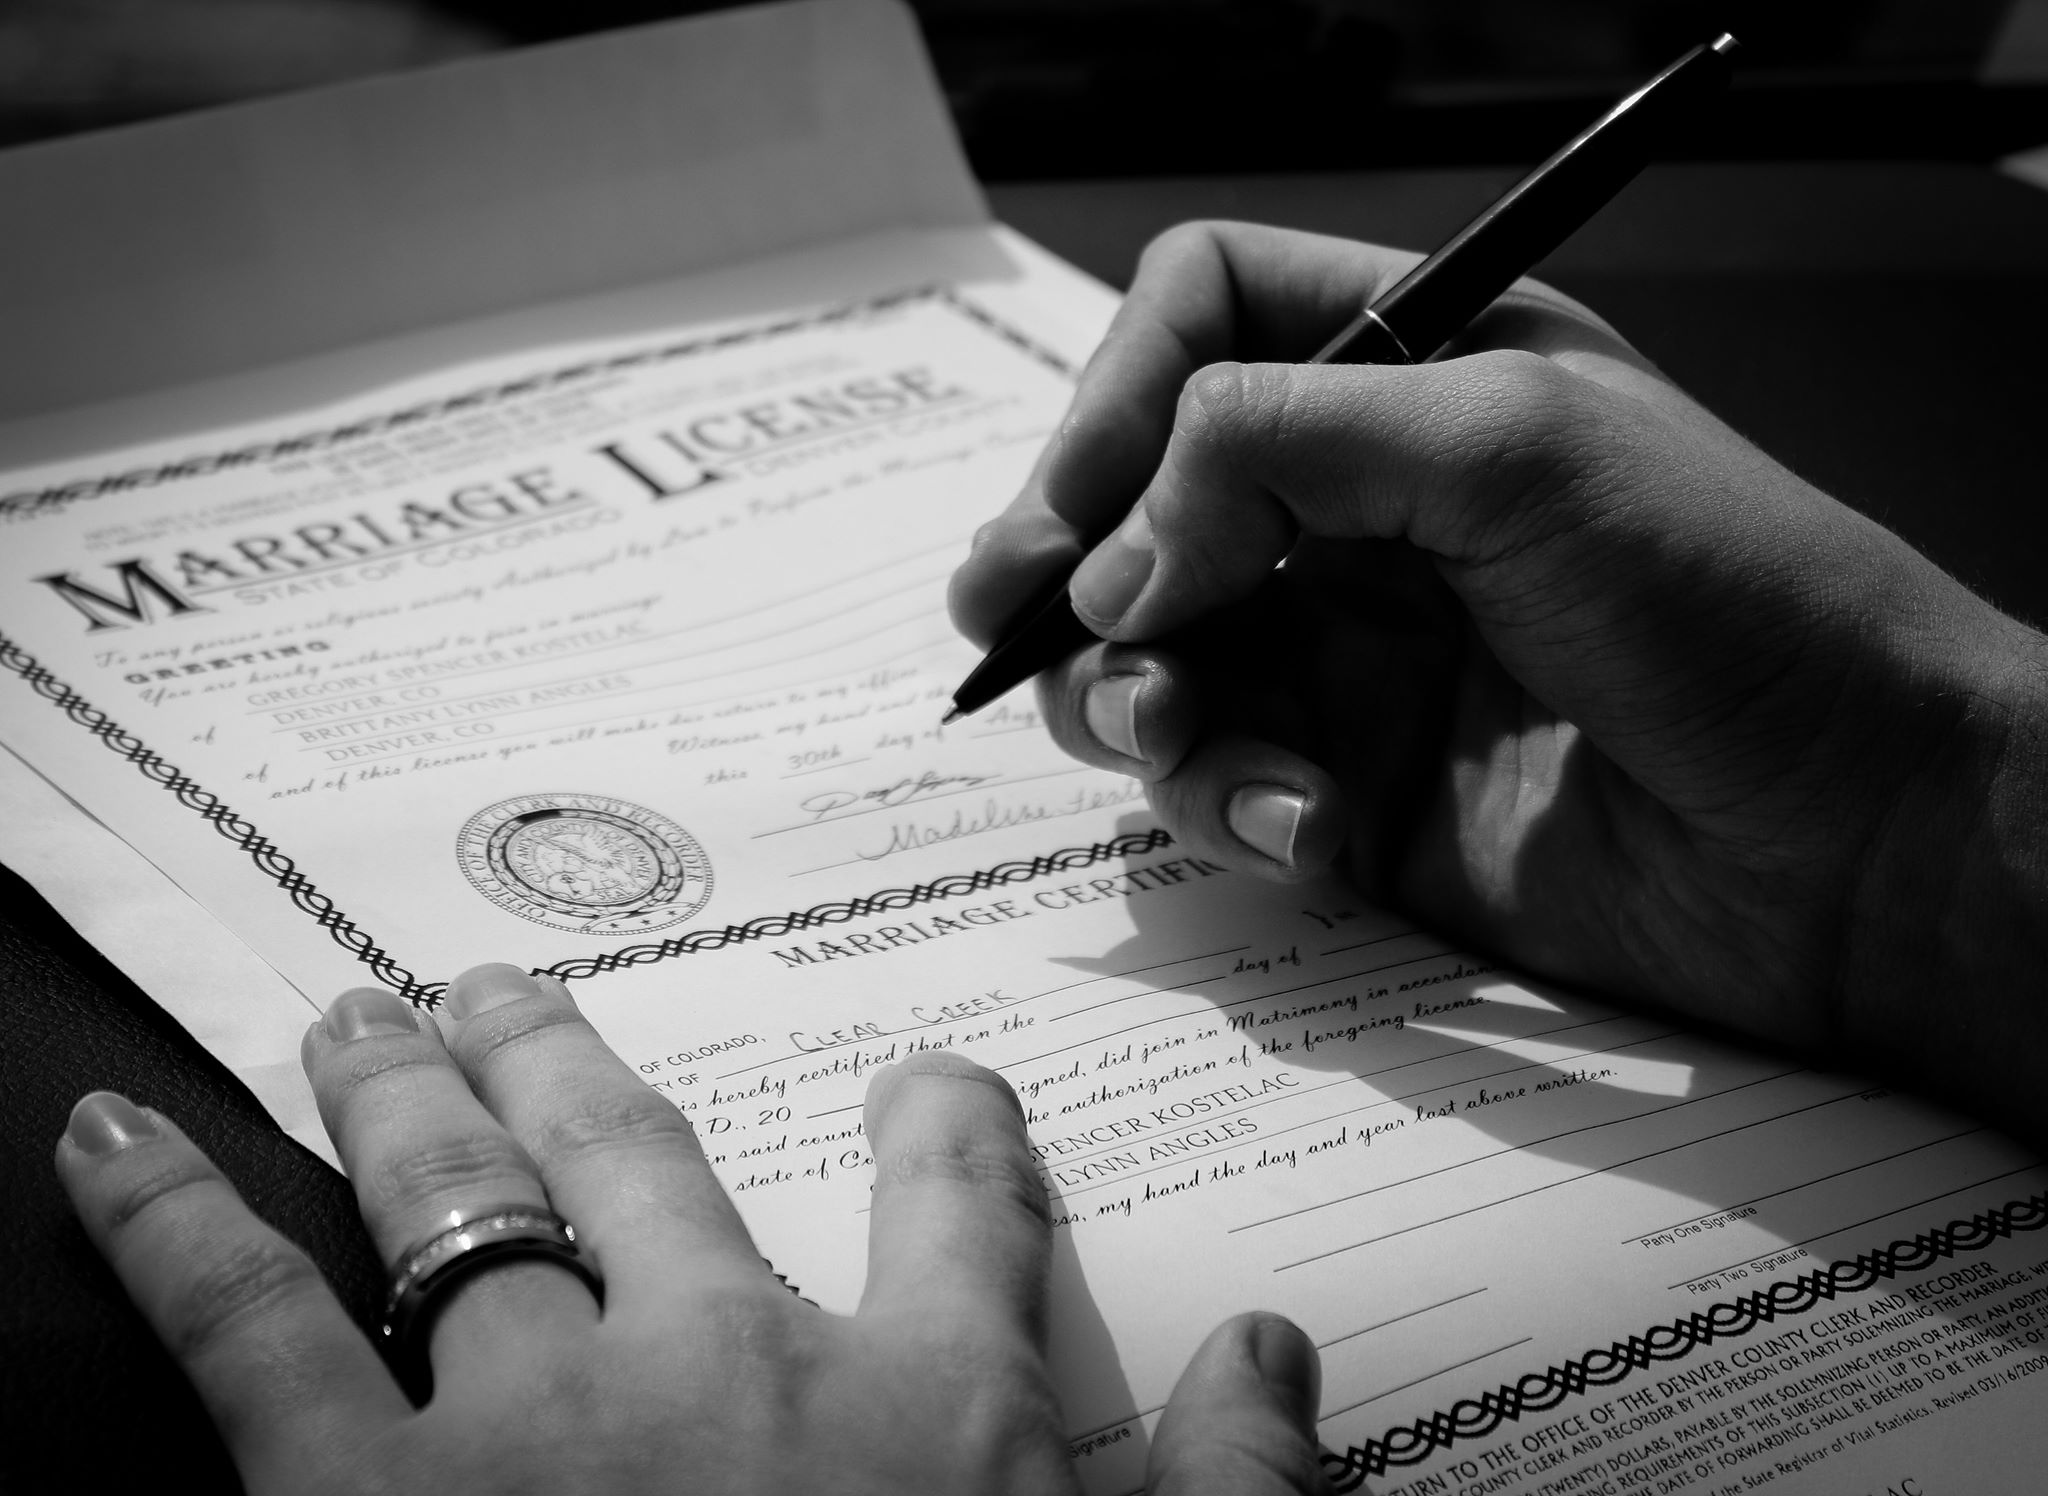 MARRIAGE LICENSE
STATE OF COLORADO DENVER COUNTY
To any person or religious society Authorized by Law to Perform the Marriage
GREETING
You are hereby authorized to join in marriage
GREGORY SPENCER KOSTELAC
of DENVER, CO
BRITTANY LYNN ANGLES
of DENVER, CO
and of this license you will make due return to my office
Witness, my hand and
this 30th day of Aug
Madeline
OFFICE OF THE CLERK AND RECORDER
CITY AND COUNTY OF DENVER
MARRIAGE CERTIFI
OF COLORADO,
TY OF CLEAR CREEK
is hereby certified that on the day of
.D., 20 igned, did join in Matrimony in accordan
in said count he authorization of the foregoing license.
state of Co
SPENCER KOSTELAC
LYNN ANGLES
ess, my hand the day and year last above written.
Print
Party One Signature
Party Two Signature
Signature
TURN TO THE OFFICE OF THE DENVER COUNTY CLERK AND RECORDER
COUNTY CLERK AND RECORDER BY THE PERSON OR PARTY SOLEMNIZING THE MARRIAGE,
(TWENTY) DOLLARS, PAYABLE BY THE SOLEMNIZING PERSON OR PARTY. AN ADDITI
DING REQUIREMENTS OF THIS SUBSECTION (1) UP TO A MAXIMUM OF
THE DATE OF FORWARDING SHALL BE DEEMED TO BE THE DATE OF
of the State Registrar of Vital Statistics. Revised 03/16/2009
AC